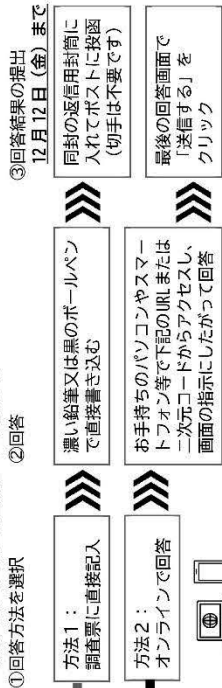 ①回答方法を選択
②回答
③回答結果の提出
12月12日（金）まで
方法1：
調査票に直接記入
濃い鉛筆又は黒のボールペン
で直接書き込む
同封の返信用封筒に
入れてポストに投函
（切手は不要です）
方法2：
オンラインで回答
お手持ちのパソコンやスマー
トフォン等で下記のURLまたは
二次元コードからアクセスし、
画面の指示にしたがって回答
最後の回答画面で
「送信する」を
クリック